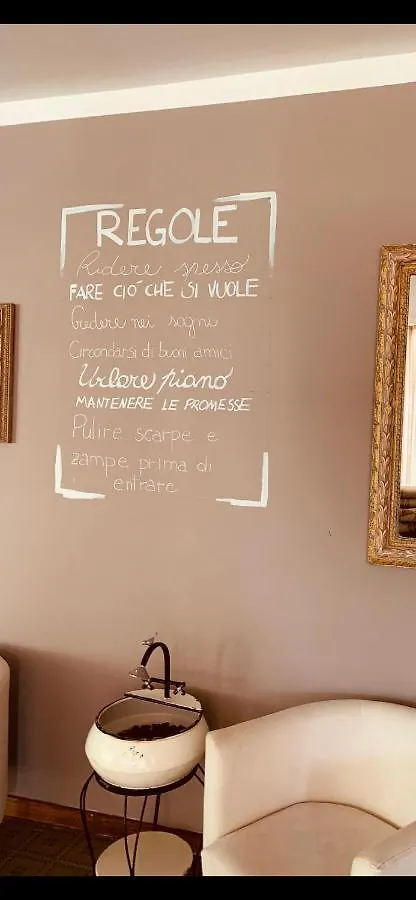 REGOLE
Ridere spesso
FARE CIO' CHE SI VUOLE
Credere nei sogni
Circondarsi di buoni amici
Urlare piano
MANTENERE LE PROMESSE
Pulire scarpe e
zampe prima di
entrare